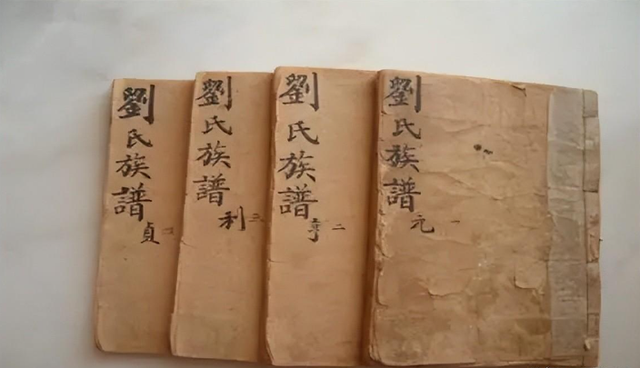 劉氏族譜
元 一
劉氏族譜
亨 二
劉氏族譜
利 三
劉氏族譜
貞